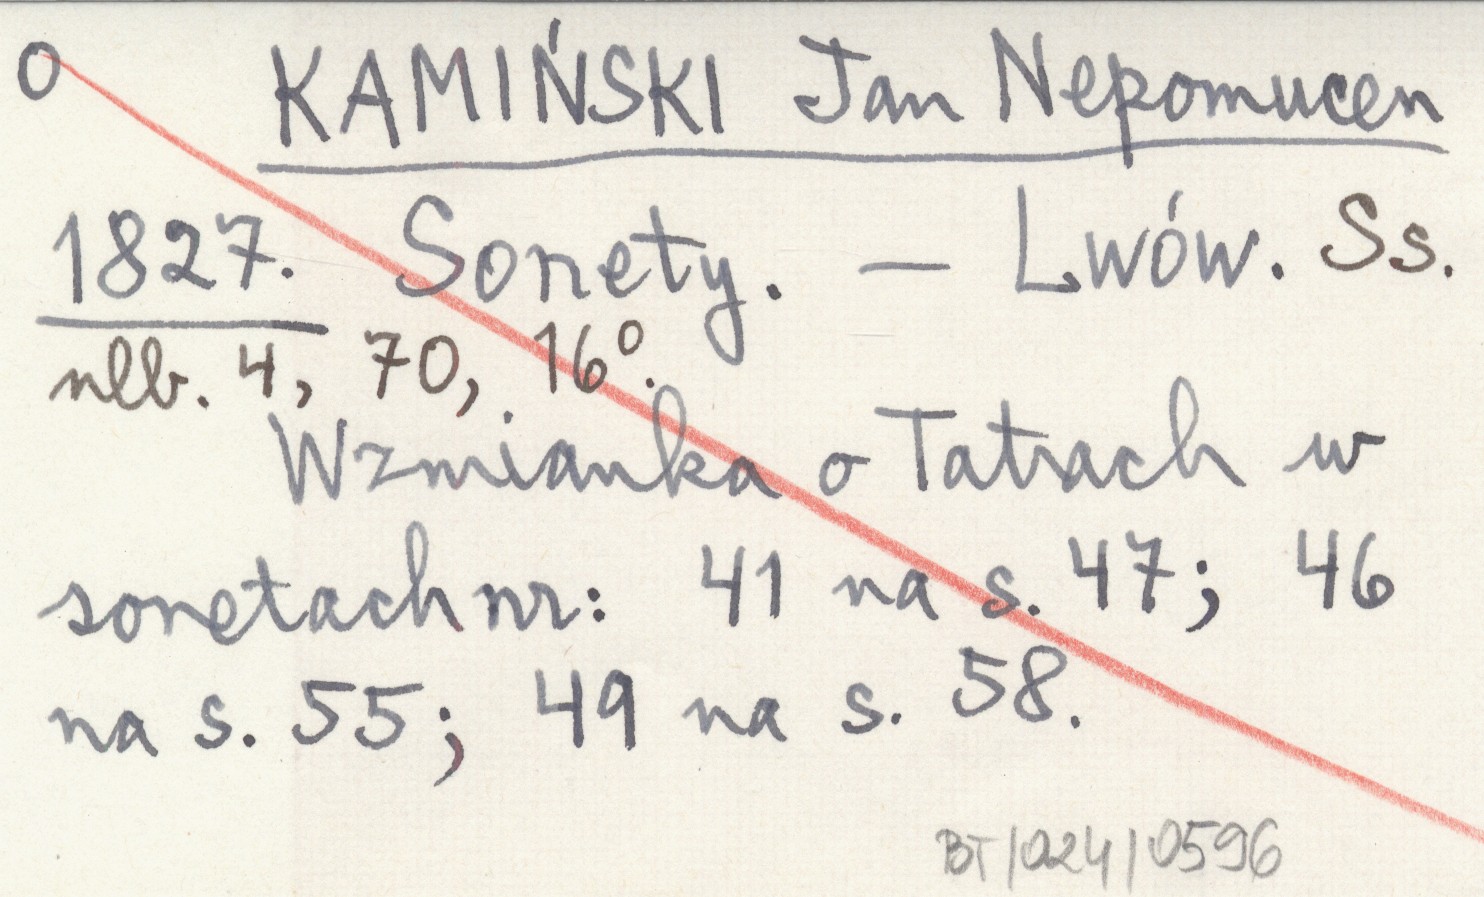 O KAMIŃSKI Jan Nepomucen
1827. Sonety. – Lwów. Ss.
nlb. 4, 70, 16°.
Wzmianka o Tatrach w
sonetach nr: 41 na s. 47; 46
na s. 55; 49 na s. 58.
BT/024/0596